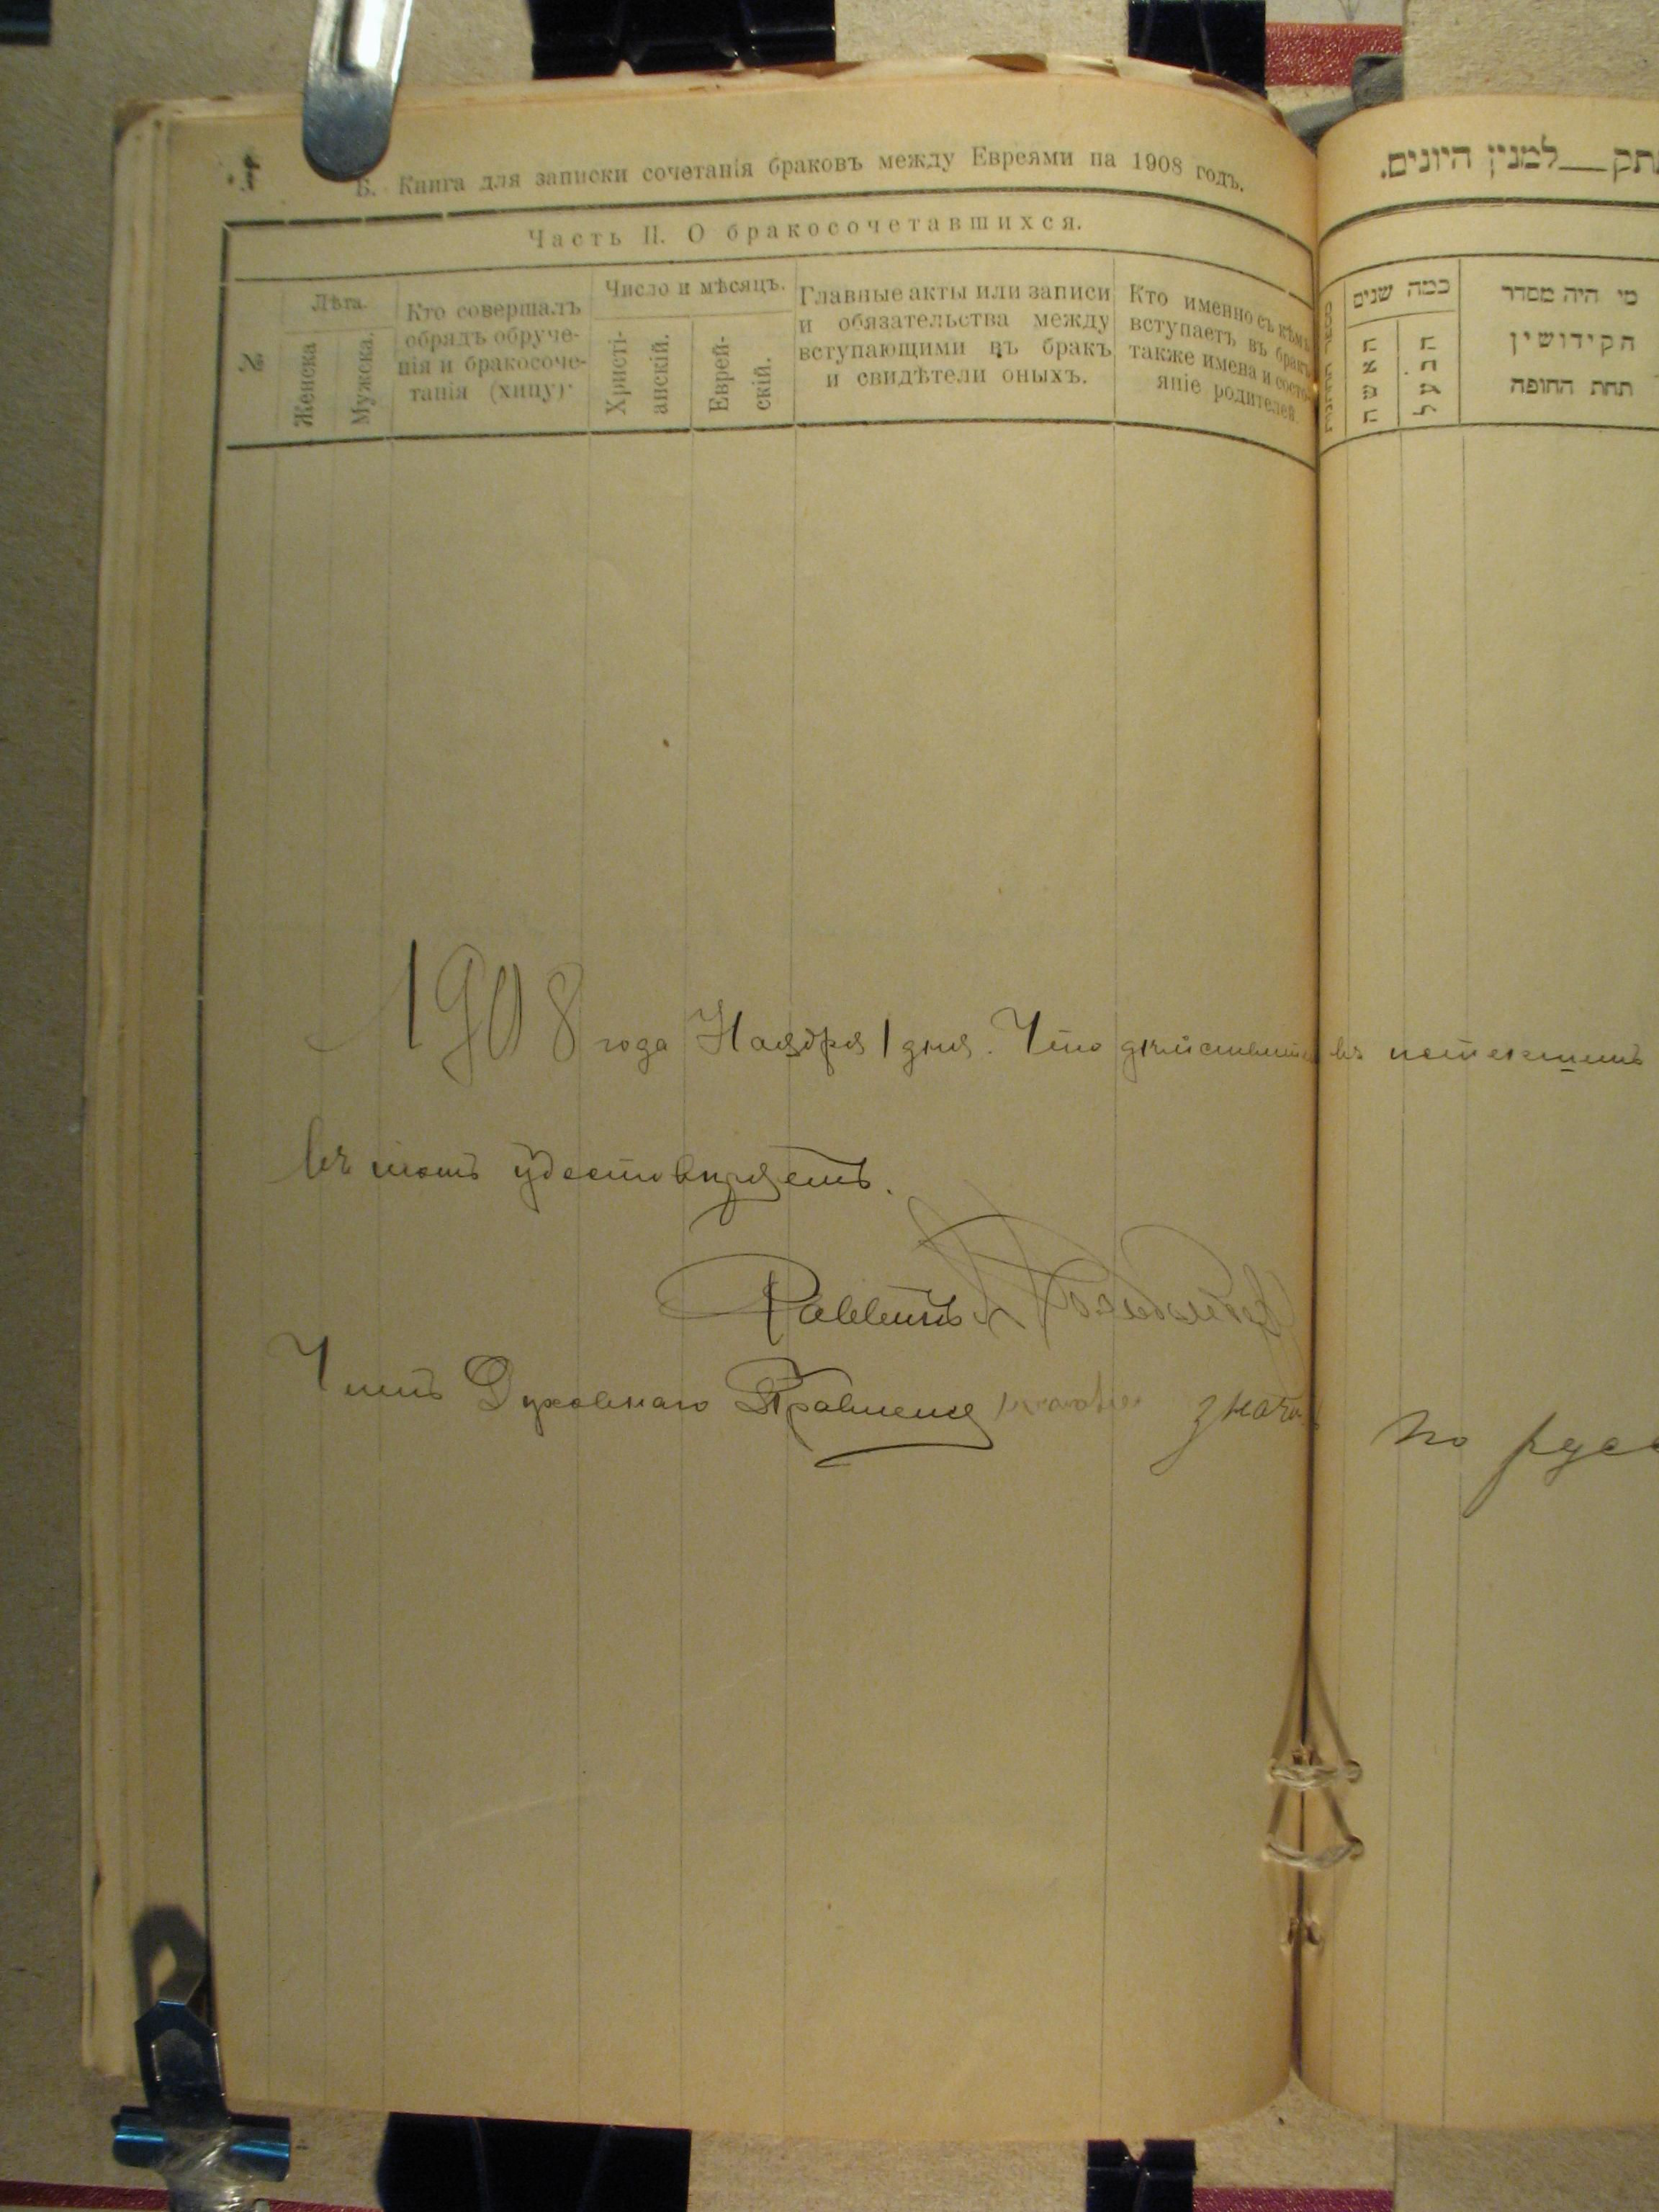 Б. Книга для записки сочетанія браковъ между Евреями на 1908 годъ.
Часть II. О бракосочетавшихся.
№
Лѣта.
Женска
Мужска.
Кто совершалъ
обрядъ обруче-
нія и бракосоче-
танія (хипу)
Число и мѣсяцъ.
Христі-
анскій.
Еврей-
скій.
Главные акты или записи
и обязательства между
вступающими въ бракъ
и свидѣтели оныхъ.
Кто именно съ кѣмъ
вступаетъ въ бракъ
также имена и состо-
яніе родителей
למנין היונים.
כמה שנים
האשה
הבעל
מי היה מסדר
הקידושין
תחת החופה
1908 года Ноября 1 дня. Что дѣйствительно въ истекшемъ
въ томъ удостовѣряетъ.
Раввинъ
Членъ Духовнаго Правленія
по русс